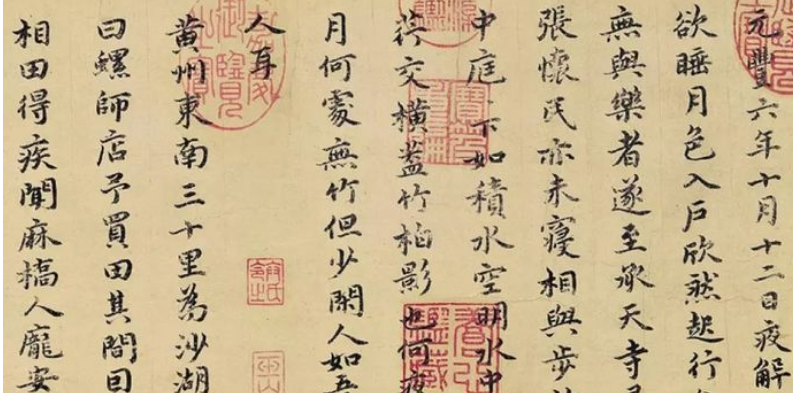 元豐六年十月十二日夜解
欲睡月色入戶欣然起行
無與樂者遂至承天寺
張懷民亦未寢相與步
中庭下如積水空明水中
荇交橫蓋竹柏影也何夜
月何處無竹但少閑人如吾
人耳
黃州東南三十里為沙湖
曰螺師店予買田其間因
相田得疾聞麻橋人龐安